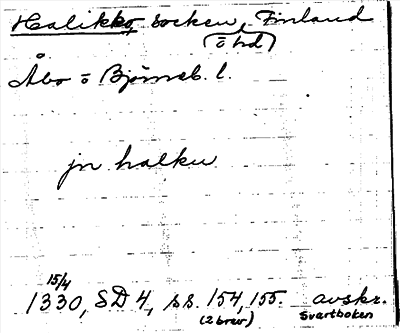 Halikko, socken, Finland
(o hd)
Åbo o Björneb. l.
jn halku
15/4
1330, SD 4, ss. 154, 155. avskr.
(2 brev) Svartboken